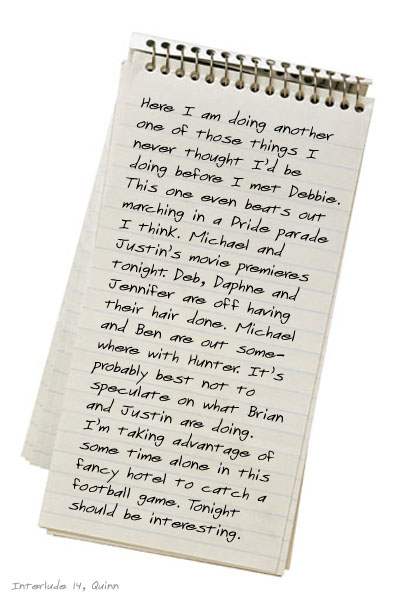 Here I am doing another
one of those things I
never thought I'd be
doing before I met Debbie.
This one even beats out
marching in a Pride parade
I think. Michael and
Justin's movie premieres
tonight. Deb, Daphne and
Jennifer are off having
their hair done. Michael
and Ben are out some-
where with Hunter. It's
probably best not to
speculate on what Brian
and Justin are doing.
I'm taking advantage of
some time alone in this
fancy hotel to catch a
football game. Tonight
should be interesting.
Interlude 14, Quinn